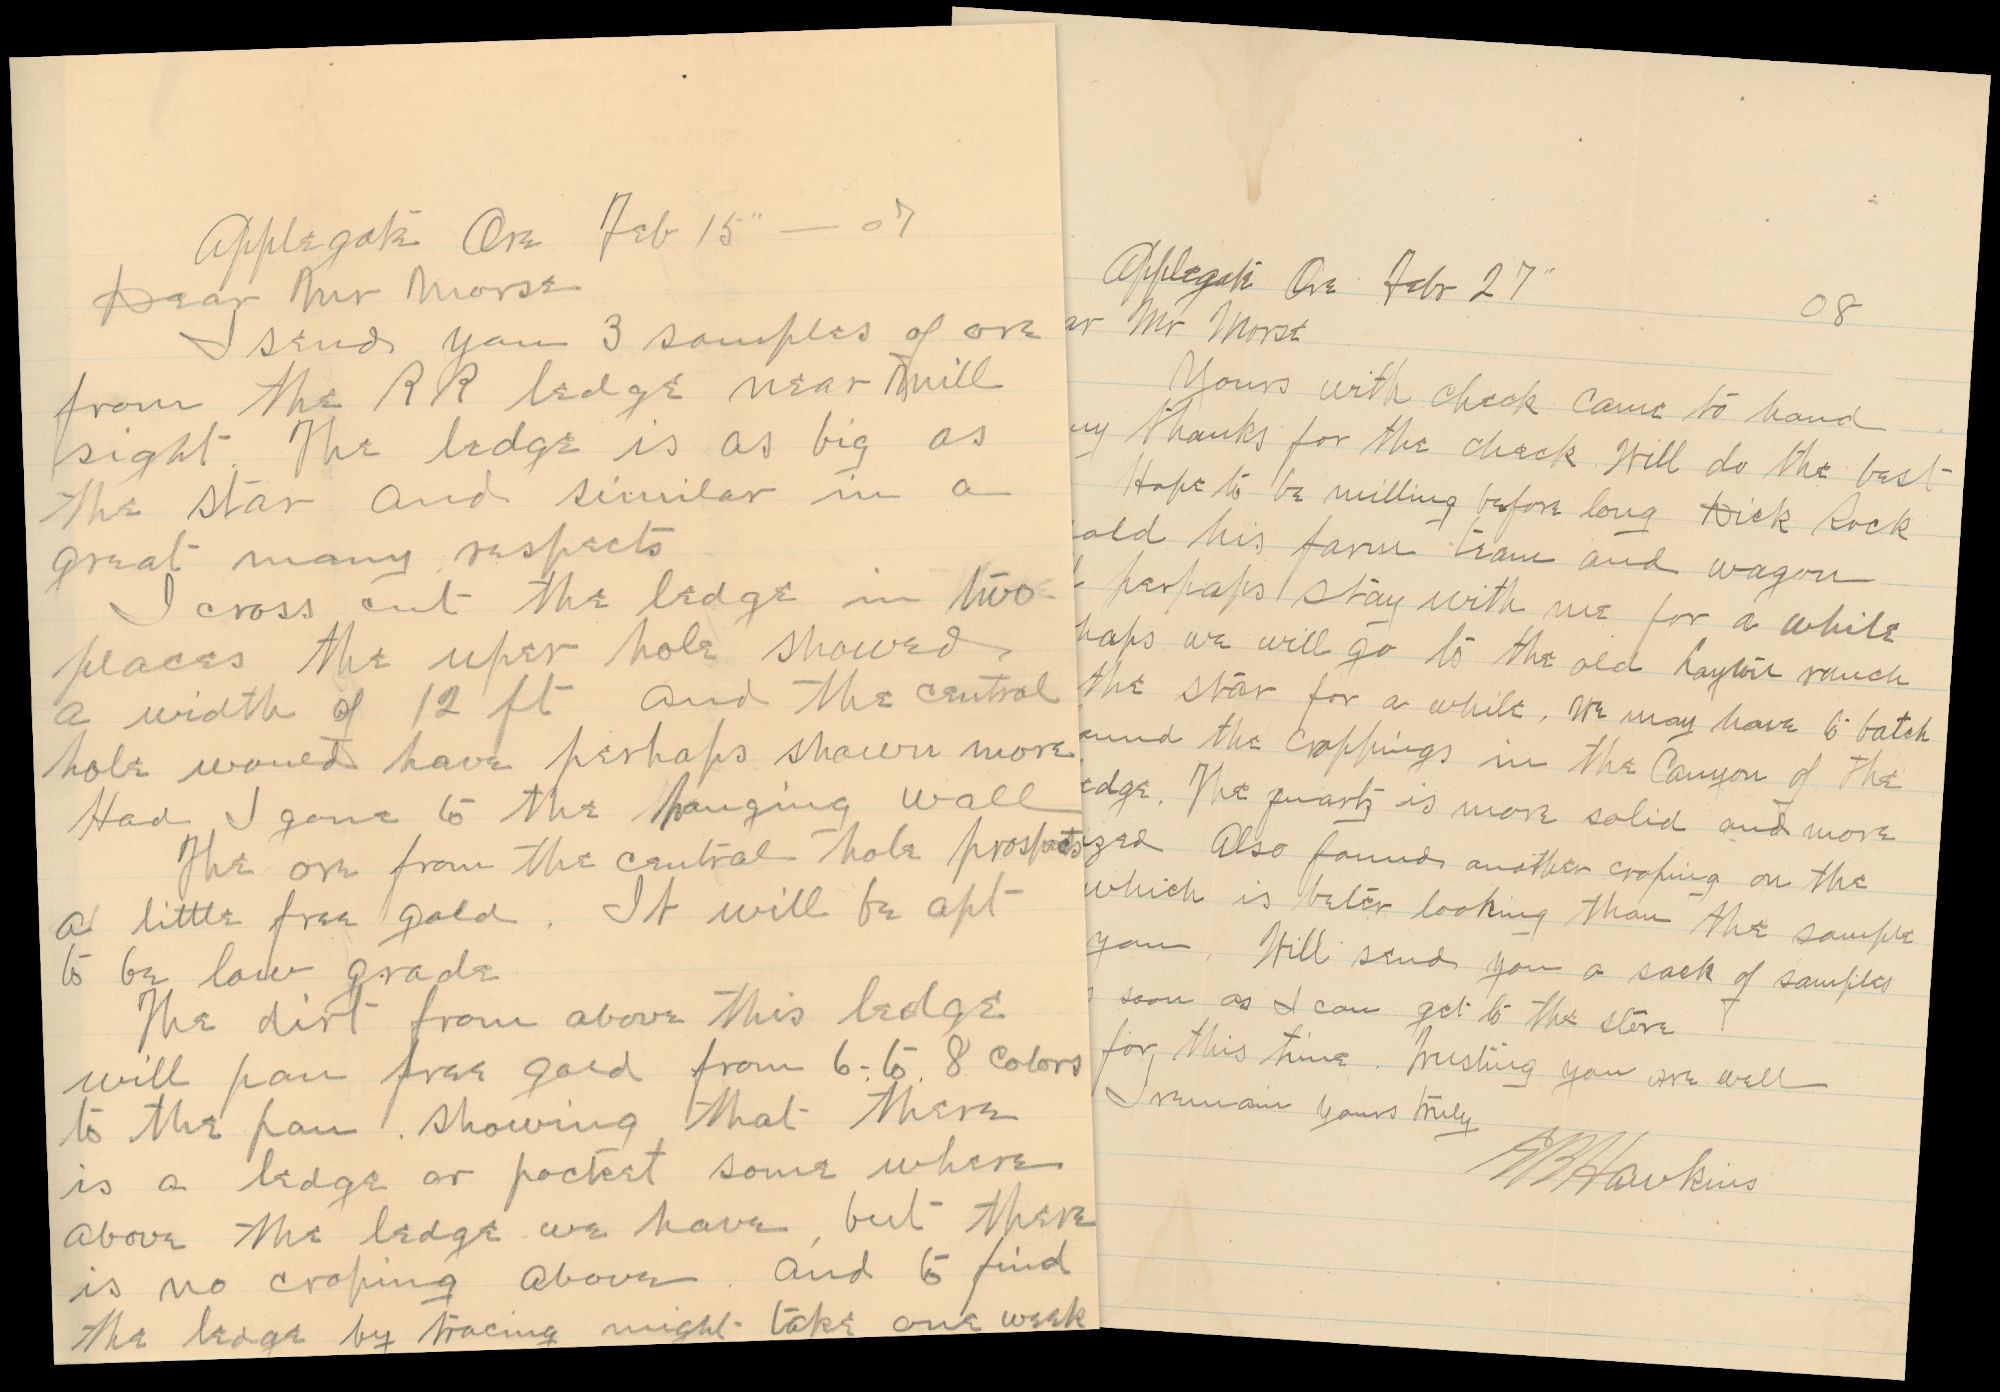 Applegate Ore Feb 15" — 07
Dear Mr Morse
I send you 3 samples of ore
from the RR ledge near Mill
sight. The ledge is as big as
the star and similar in a
great many respects
I cross cut the ledge in two
places the uper hole showed
a width of 12 ft and the central
hole would have perhaps shown more
Had I gone to the hanging wall
The ore from the central hole prospects
a little free gold. It will be apt
to be low grade
The dirt from above this ledge
will pan free gold from 6 to 8 colors
to the pan. showing that there
is a ledge or pocket some where
above the ledge we have, but there
is no croping above. and to find
the ledge by tracing might take one week
Applegate Ore Febr 27" 08
ar Mr Morse
Yours with check came to hand
ny thanks for the check Will do the best
Hope to be milling before long Dick Rock
old his farm team and wagon
perhaps stay with me for a while
haps we will go to the old ranch
the star for a while. We may have to batch
ound the croppings in the Canyon of the
edge. The quartz is more solid and more
ized Also found another croping on the
which is beter looking than the sample
you. Will send you a sack of samples
soon as I can get to the store
for this time. Trusting you are well
I remain yours truly
Hawkins